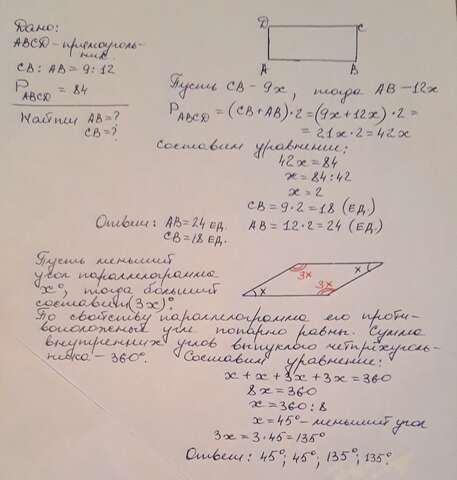 Дано:
ABCD-прямоуголь-
ник.
CB : AB = 9 : 12
P ABCD = 84
Найти AB = ?
CB = ?
D C
A B
Пусть CB - 9x, тогда AB - 12x
P ABCD = (CB + AB) · 2 = (9x + 12x) · 2 =
= 21x · 2 = 42x
Составим уравнение:
42x = 84
x = 84 : 42
x = 2
CB = 9 · 2 = 18 (ЕД.)
AB = 12 · 2 = 24 (ЕД.)
Ответ: AB = 24 ЕД.
CB = 18 ЕД.
Пусть меньший
угол параллелограмма
x°, тогда больший
составит (3x)°.
3x x
x 3x
По свойству параллелограмма его проти-
воположные углы попарно равны. Сумма
внутренних углов выпуклого четырёхуголь-
ника - 360°. Составим уравнение:
x + x + 3x + 3x = 360
8x = 360
x = 360 : 8
x = 45° - меньший угол
3x = 3 · 45 = 135°
Ответ: 45°; 45°; 135°; 135°.